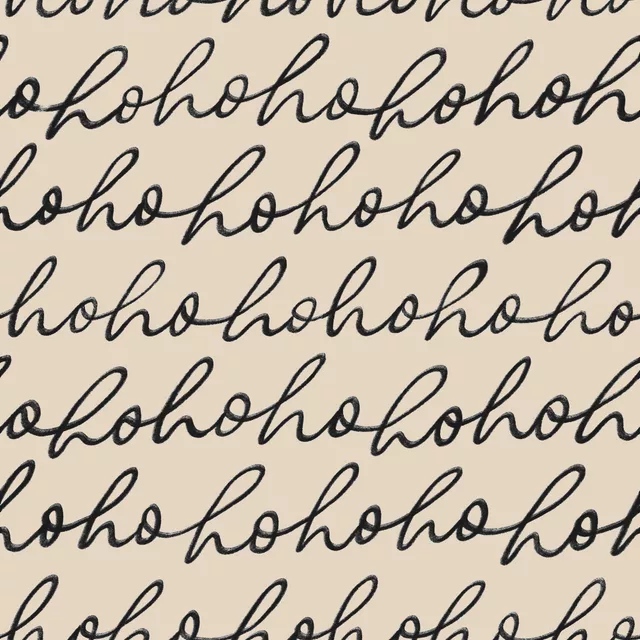 hohohohohoho
ohohohohohoh
hohohohohohoh
hohohohohoho
ohohohohohoh
hohohohohohoh
hohohohohoho